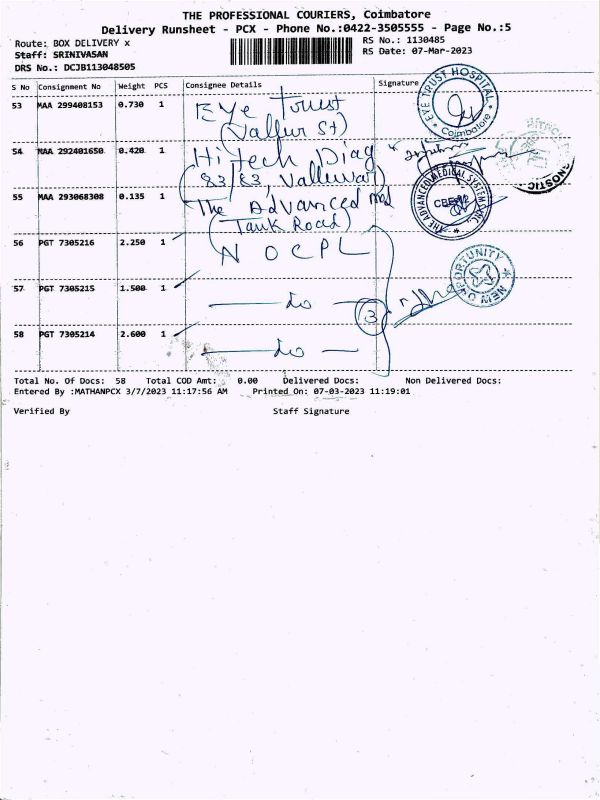 THE PROFESSIONAL COURIERS, Coimbatore
Delivery Runsheet - PCX - Phone No.:0422-3505555 - Page No.:5
Route: BOX DELIVERY x
RS No.: 1130485
Staff: SRINIVASAN
RS Date: 07-Mar-2023
DRS No.: DCJB113048505
S No Consignment No Weight PCS Consignee Details Signature
53 MAA 299408153 0.730 1 Eye Trust
(Vallur St)
EYE TRUST HOSPITAL
Coimbatore
54 MAA 292401650 0.420 1 Hi Tech Diag
(83/83, Valluvar)
DIAGNOSTIC
55 MAA 293068308 0.135 1 The Advanced md
(Tank Road)
THE ADVANCED MEDICAL SYSTEMS INC.
CBE-12
56 PGT 7305216 2.250 1 NOCPL
NEW OPPORTUNITY
57 PGT 7305215 1.500 1 — do — 3
58 PGT 7305214 2.600 1 — do —
Total No. Of Docs: 58 Total COD Amt: 0.00 Delivered Docs: Non Delivered Docs:
Entered By :MATHANPCX 3/7/2023 11:17:56 AM Printed On: 07-03-2023 11:19:01
Verified By Staff Signature